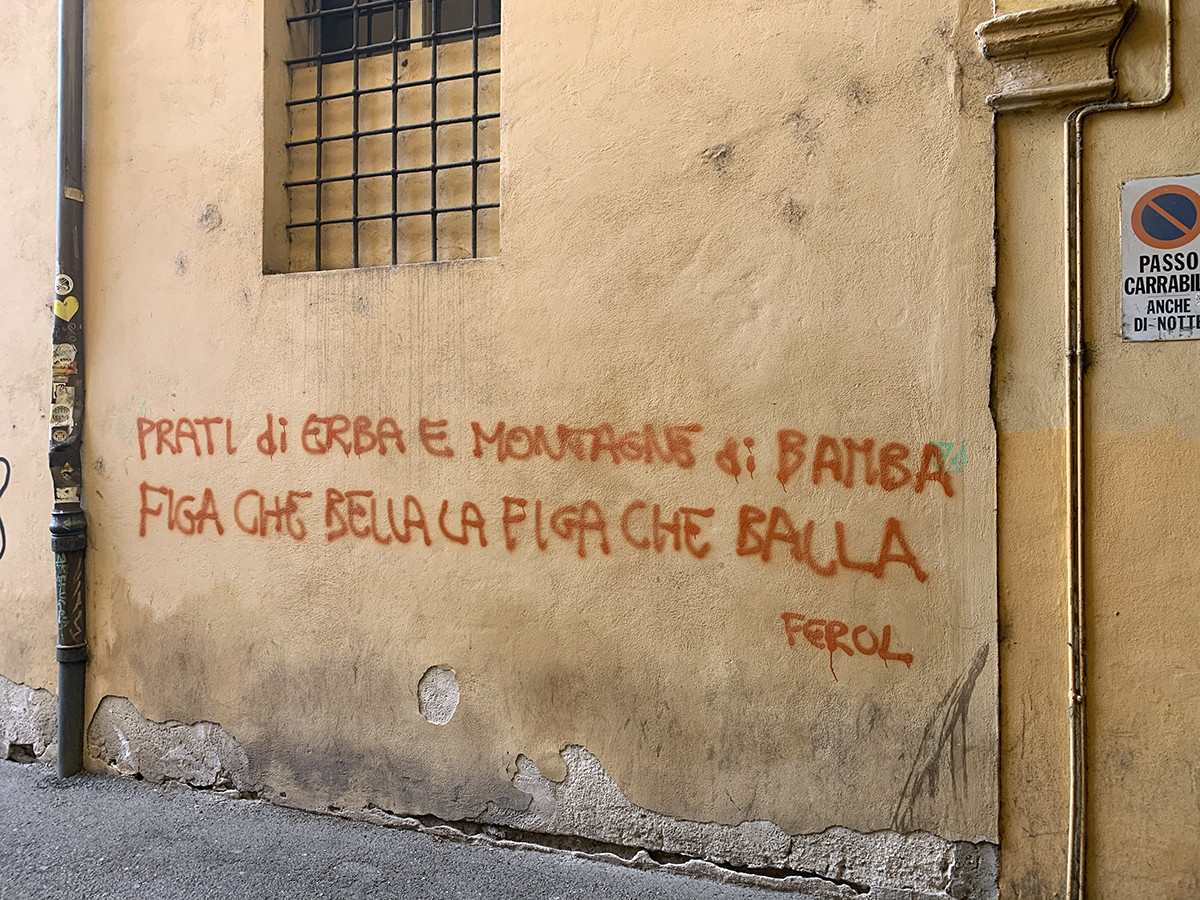 PRATI di ERBA E MONTAGNE di BAMBA
FIGA CHE BELLA LA FIGA CHE BALLA
FEROL
PASSO
ANCHE
DI NOTTE